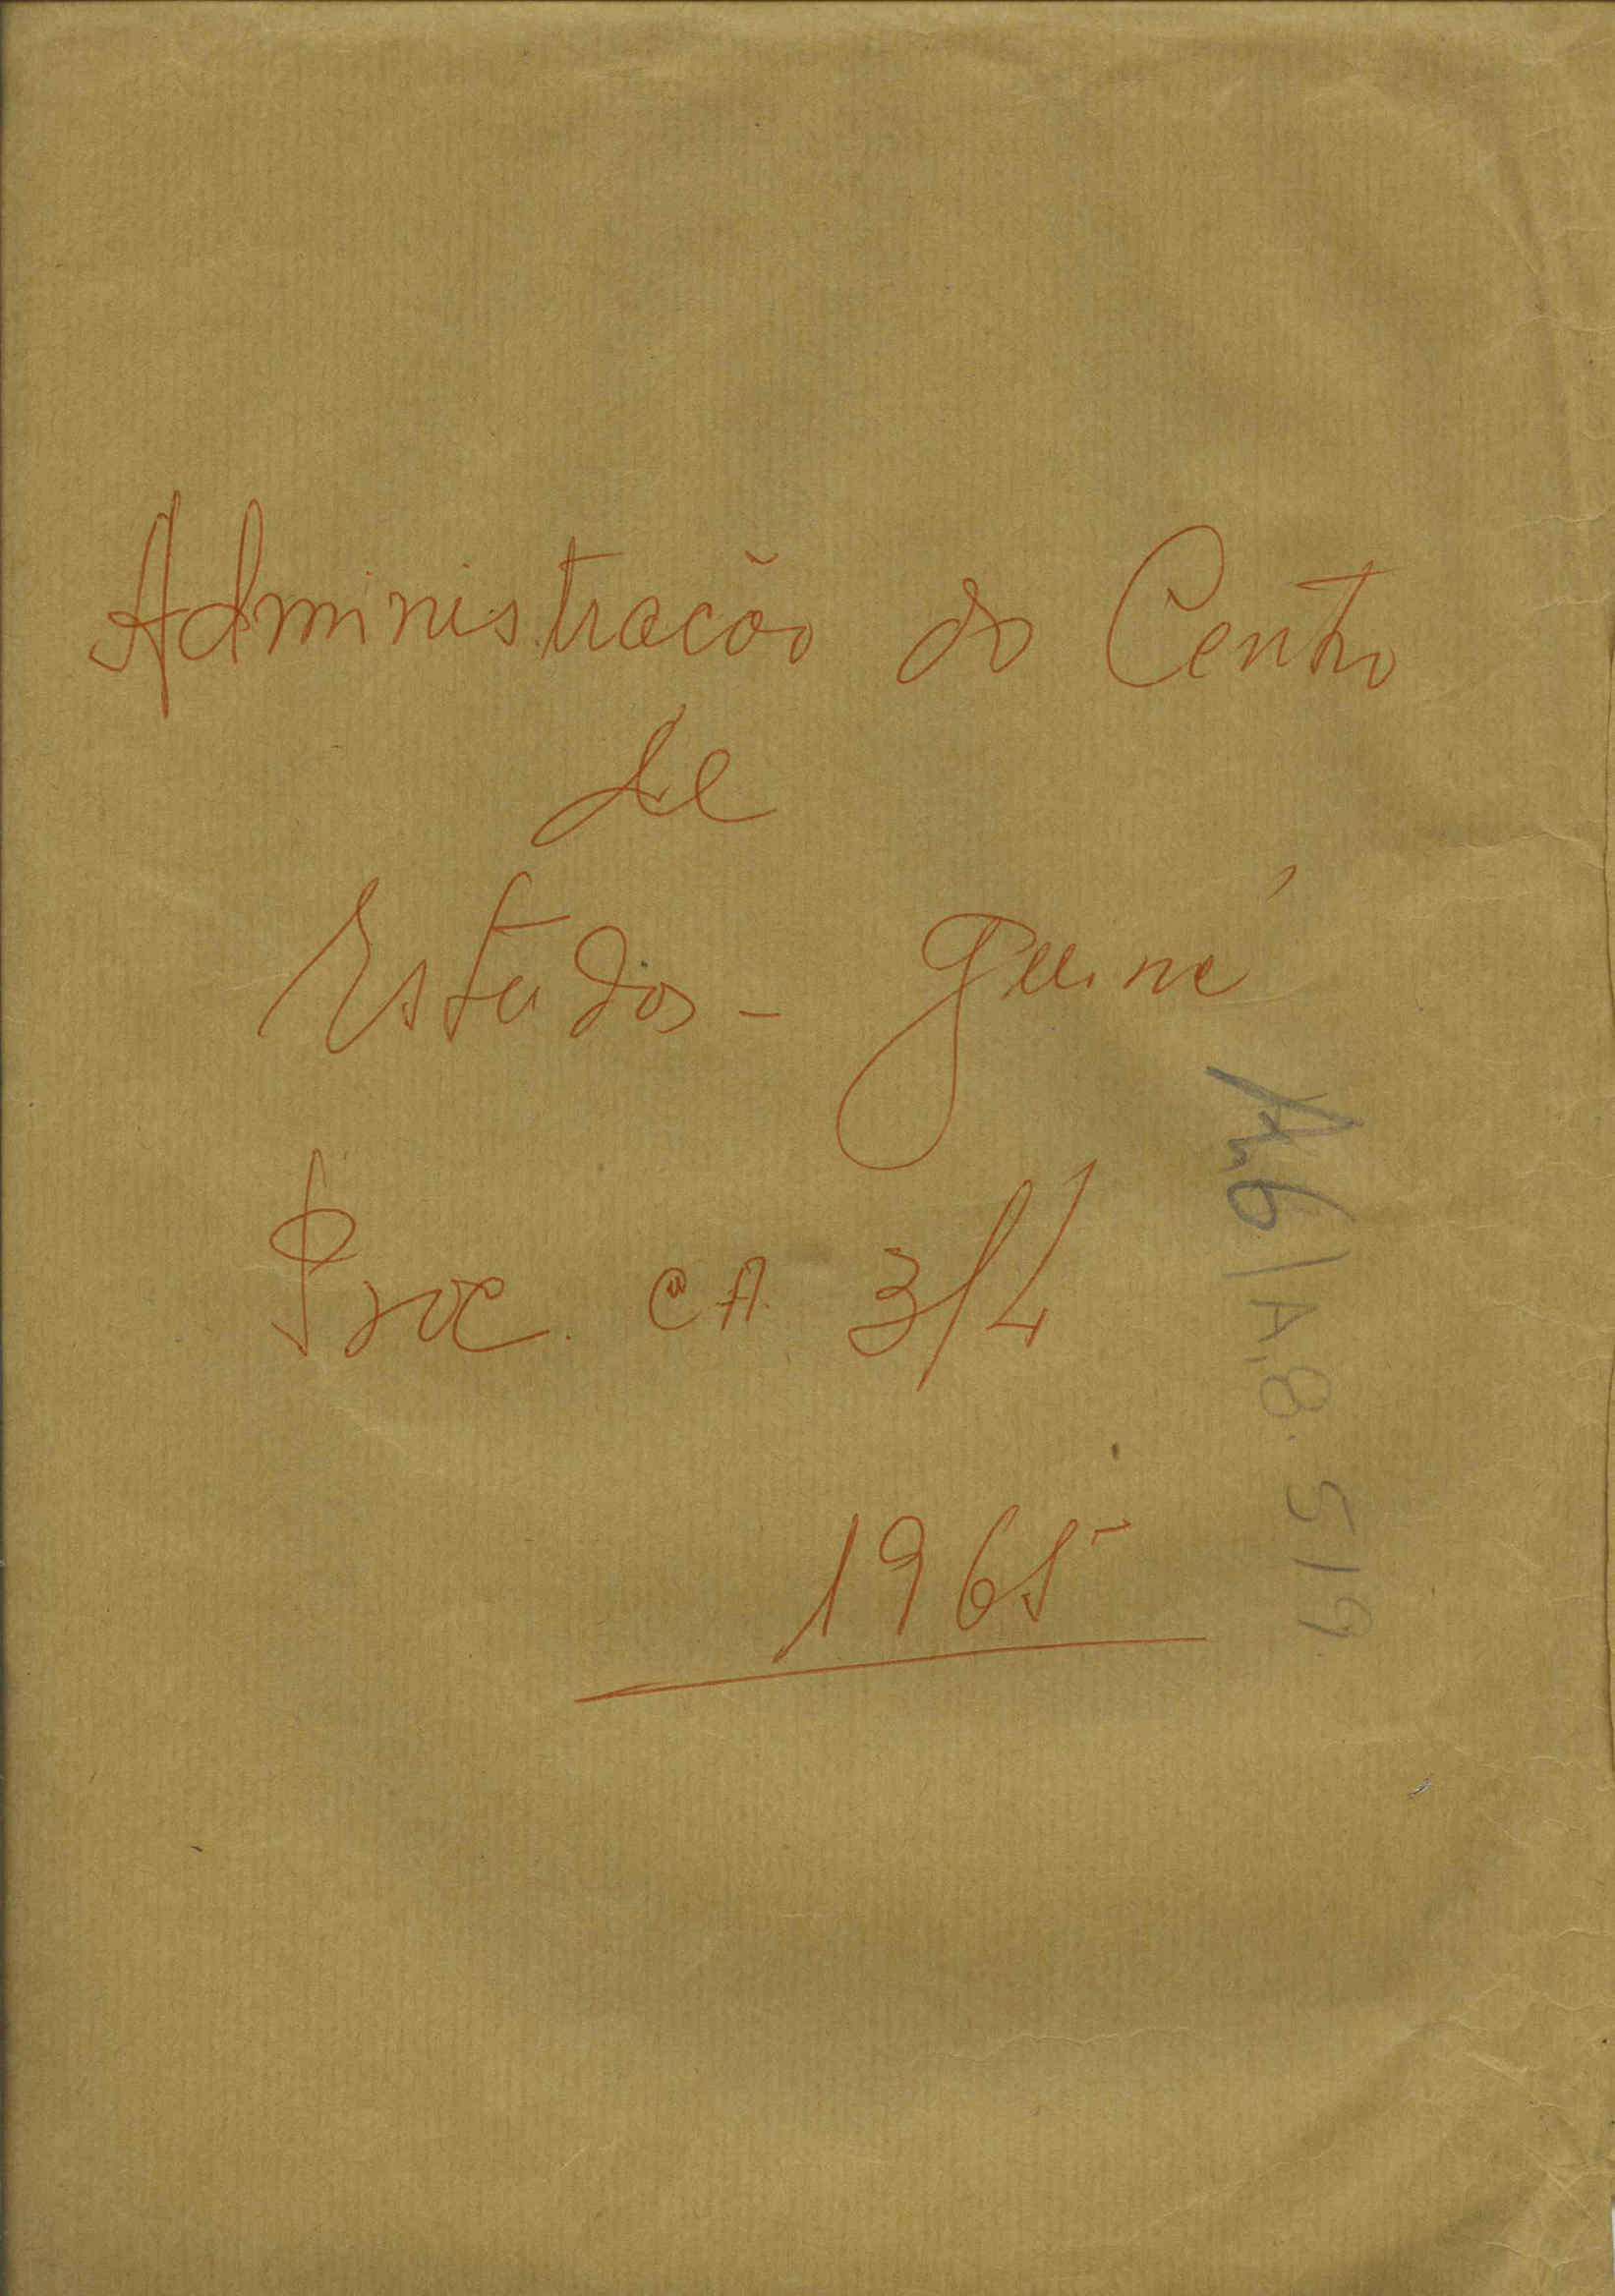 Administração do Centro
de
Estudos - Guiné
Proc. CA 3/4
1965
A.8. 519